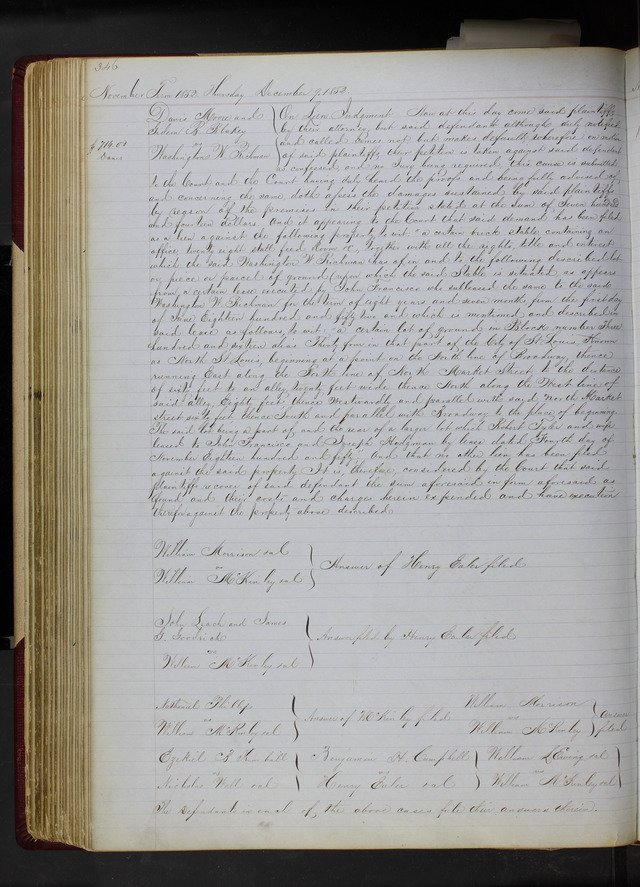 346
November Term 1852. Thursday December 9, 1852.
Davis Moore and } On Lien Judgment. Now at this day come said plaintiffs
by their attorney but said defendant although duly notified
$714.00 vs and called comes not but makes default, wherefore on motion
Washington W of said plaintiffs their petition is taken against said defendant
as confessed, and no Jury being required, this cause is submitted
to the Court and the Court having duly heard the proofs and being fully advised of
and concerning the same doth assess the damages sustained by said plaintiffs
by reason of the premises in their petition stated at the Sum of Seven hundred
and fourteen dollars, and it appearing to the Court that said demand has been filed
as a lien against the following property to wit: "a certain brick stable containing an
office, twenty eight stall feed room &c, together with all the right, title and interest
which the said Washington W has of in and to the following described lot
or piece or parcel of ground (upon which the said Stable is situated as appears
from a certain lease executed by John Francisco who subleased the same to the said
Washington W for the term of eight years and seven months from the first day
of June Eighteen hundred and fifty two and which is mentioned and described in
said lease as follows, to wit: "a certain lot of ground in Block number Three
hundred and sixteen alias Thirty four in that part of the City of St Louis, Known
as North St Louis, beginning at a point on the North line of Broadway, thence
running East along the North line of North Market Street to the distance
of sixty feet to an alley twenty feet wide thence North along the West line of
said alley, Eighty feet, thence Westwardly and parallel with said North Market
street sixty feet thence South and parallel with Broadway to the place of beginning.
The said lot being a part of and the rear of a larger lot which Robert Tyler and wife
leased to John Francisco and Joseph by lease dated Fourth day of
November Eighteen hundred and fifty," And that no other lien has been filed
against the said property. It is therefore considered by the Court that said
plaintiffs recover of said defendant the sum aforesaid in form aforesaid as
found, and their costs and charges herein expended and have execution
therefor against the property above described
William Morrison et al
vs } Answer of Henry Euler filed
William McKinley et al
John Leach and James
G. Goodrich } Answer filed by Henry Euler filed
vs
William McKinley et al
Nathaniel Phillips } Answer of McKinley filed William Morrison } answer
vs vs filed
William McKinley et al William McKinley
Ezekiel B Kimball } Benjamin H. Campbell } William L Ewing et al }
vs vs vs
Nicholas Wall et al Henry Euler et al William McKinley et al
The defendants in each of the above cases file their answers therein.